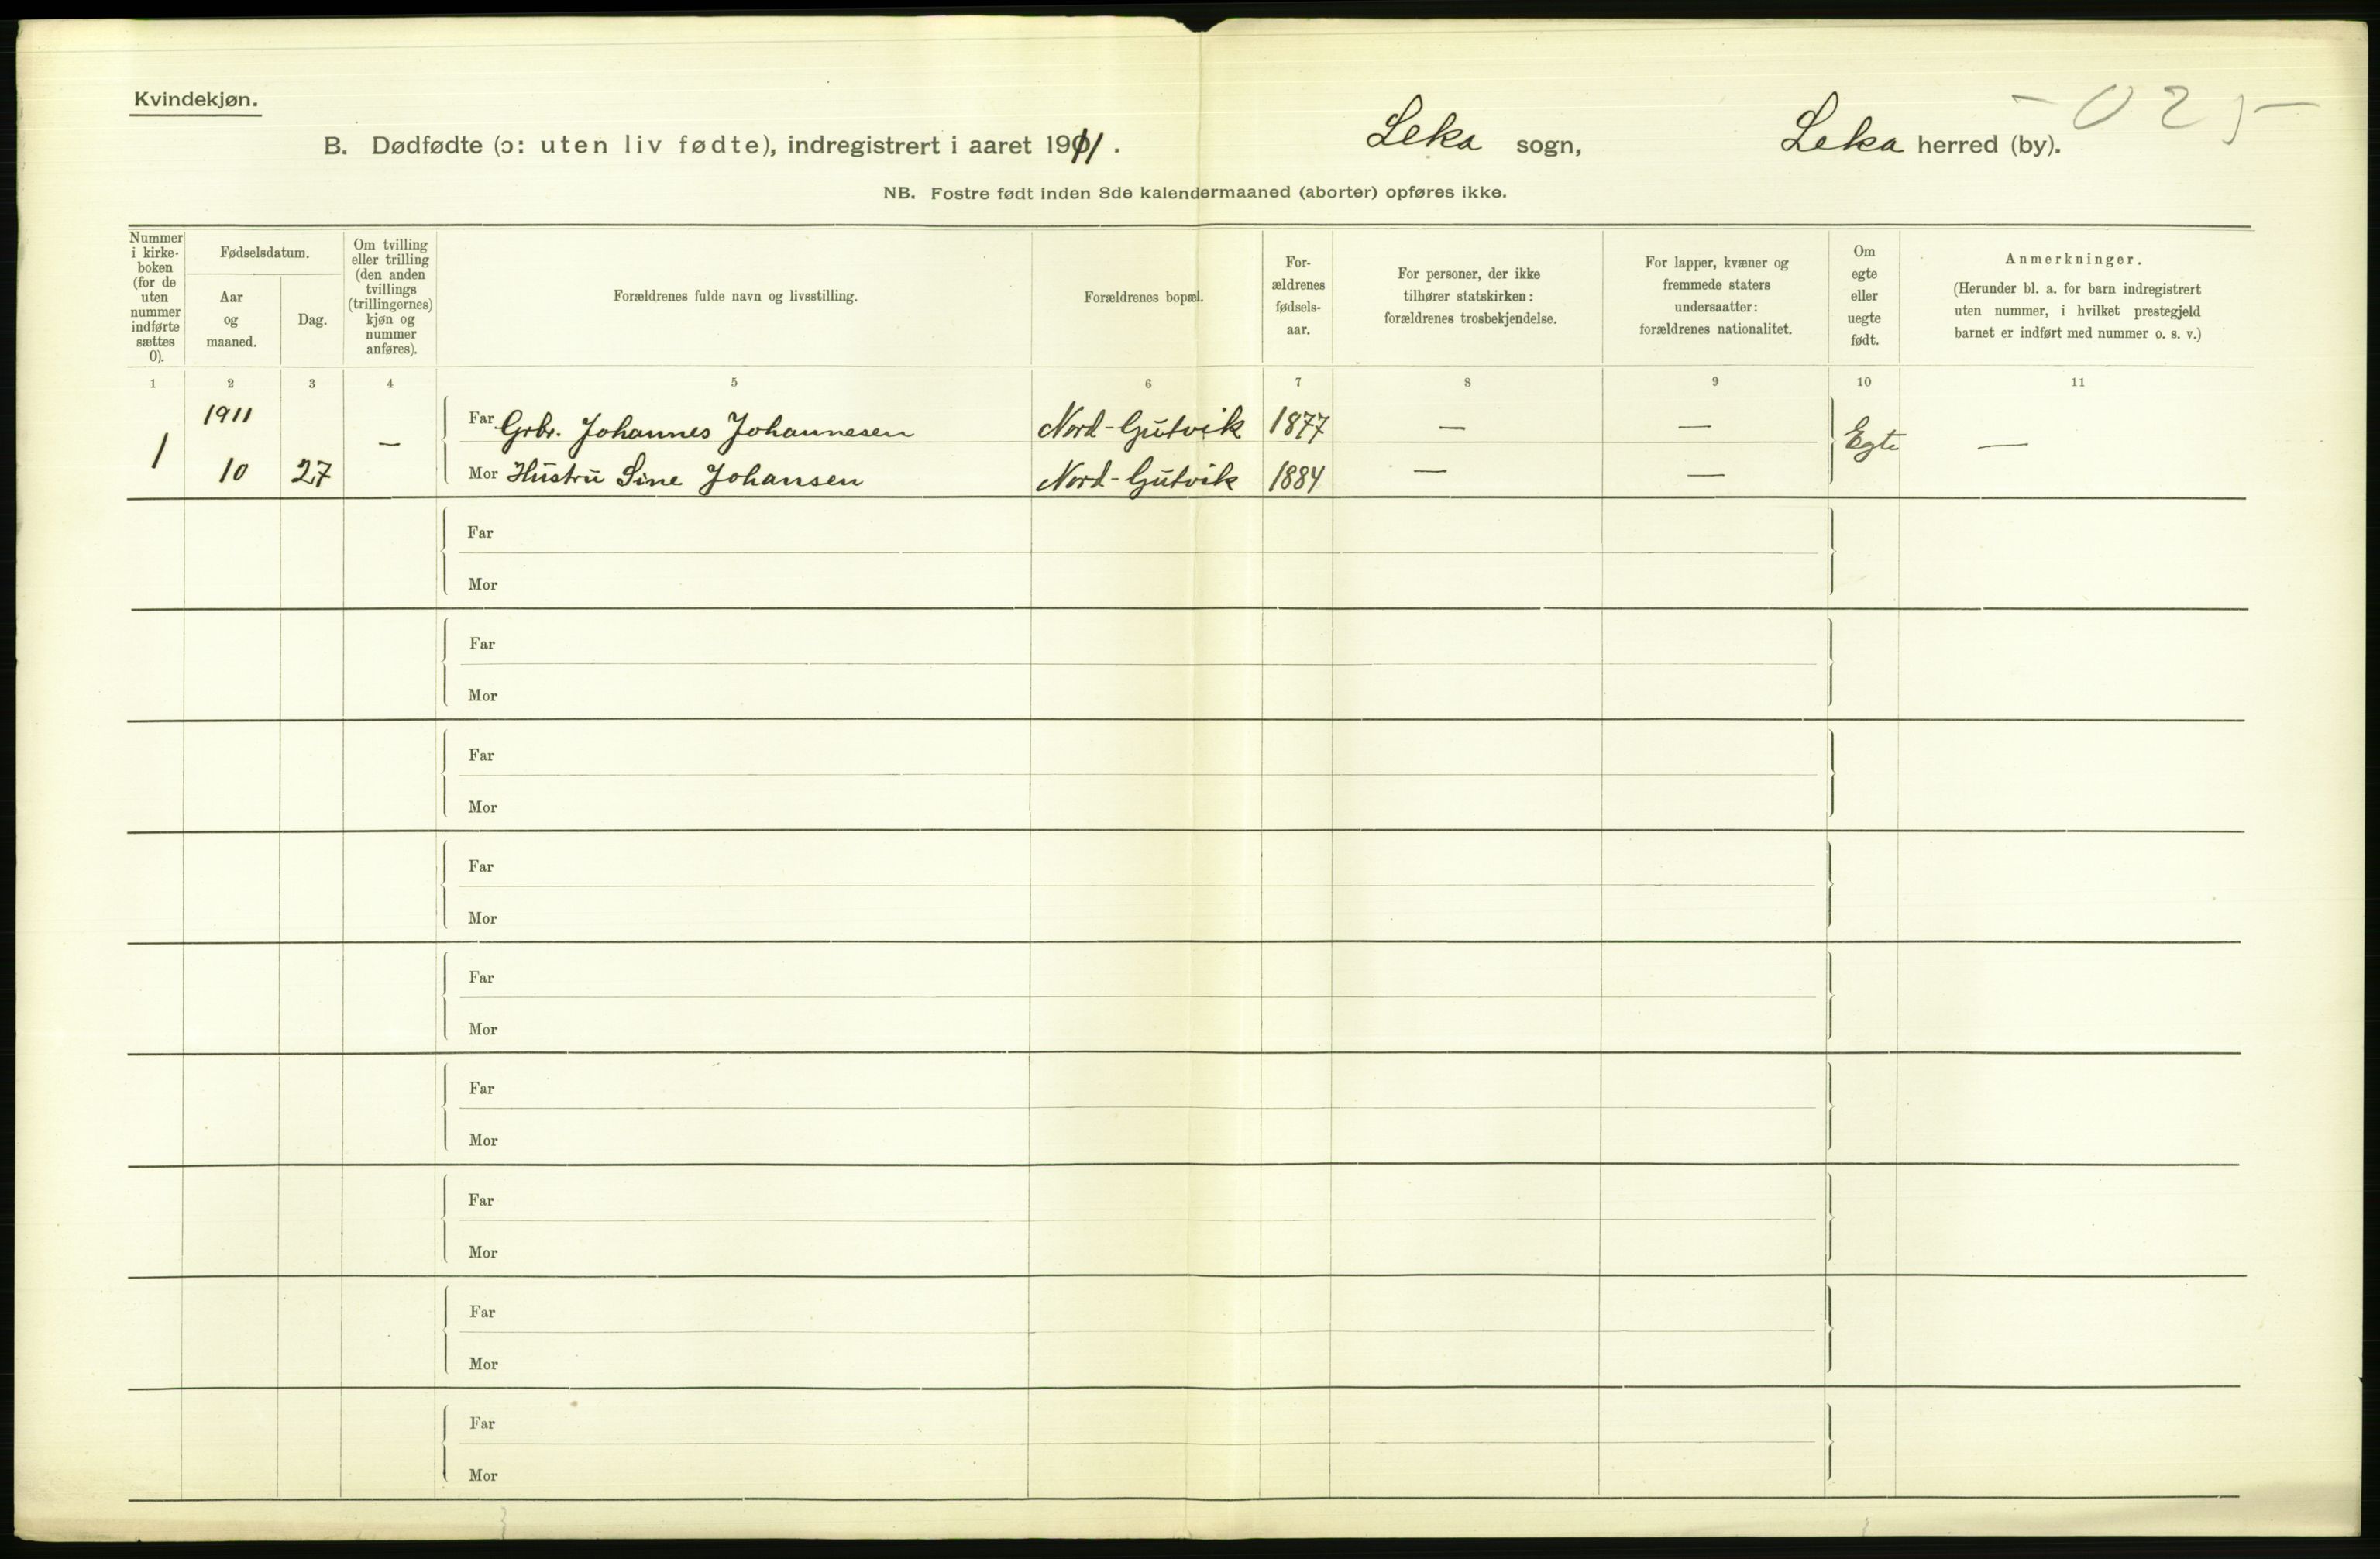 Kvindekjøn.
- 025
B. Dødfødte (ɔ: uten liv fødte), indregistrert i aaret 1911. Leka sogn, Leka herred (by).
NB. Fostre født inden 8de kalendermaaned (aborter) opføres ikke.
Nummer
i kirke-
boken
(for de
uten
nummer
indførte
sættes
0).
Fødselsdatum.
Aar
og
maaned.
Dag.
Om tvilling
eller trilling
(den anden
tvillings
(trillingernes)
kjøn og
nummer
anføres).
Forældrenes fulde navn og livsstilling.
Forældrenes bopæl.
For-
ældrenes
fødsels-
aar.
For personer, der ikke
tilhører statskirken:
forældrenes trosbekjendelse.
For lapper, kvæner og
fremmede staters
undersaatter:
forældrenes nationalitet.
Om
egte
eller
uegte
født.
Anmerkninger.
(Herunder bl. a. for barn indregistrert
uten nummer, i hvilket prestegjeld
barnet er indført med nummer o. s. v.)
1 2 3 4 5 6 7 8 9 10 11
1911 Far Grbr. Johannes Johannesen Nord-Gutvik 1877 — —
1 — Egte —
10 27 Mor Hustru Sine Johansen Nord-Gutvik 1884 — —
Far
Mor
Far
Mor
Far
Mor
Far
Mor
Far
Mor
Far
Mor
Far
Mor
Far
Mor
Far
Mor